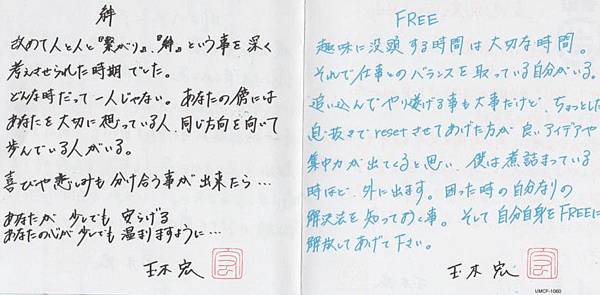 絆
改めて人と人と『繋がり』、『絆』という事を深く
考えさせられた時期でした。
どんな時だって一人じゃない。あなたの傍には
あなたを大切に想っている人、同じ方向を向いて
歩んでいる人がいる。
喜びや悲しみも分け合う事が出来たら…
あなたが少しでも安らげる
あなたの心が少しでも温まりますように…
玉木宏
FREE
趣味に没頭する時間は大切な時間。
それで仕事とのバランスを取っている自分がいる。
追い込んでやり遂げる事も大事だけど、ちょっとした
息抜きでresetさせてあげた方が良いアイデアや
集中力が出てくると思い、僕は煮詰まっている
時ほど、外に出ます。困った時の自分なりの
解決法を知っておく事。そして自分自身をFREEに
解放してあげて下さい。
玉木宏
UMCF-1060